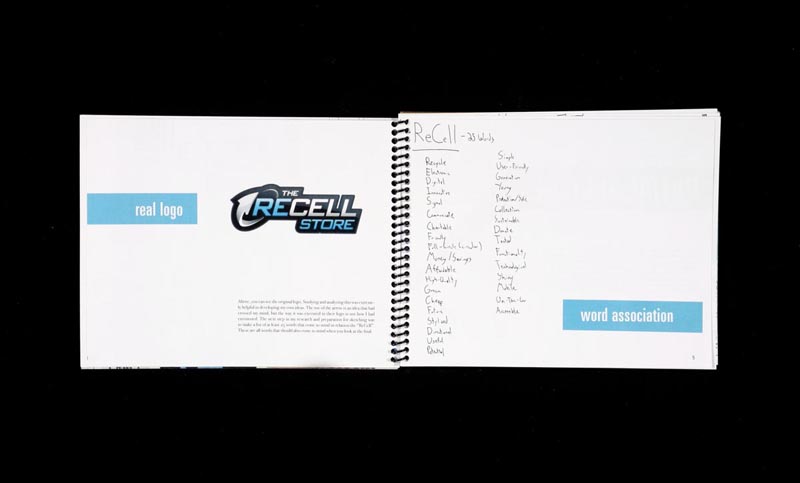 real logo
THE
RECELL
STORE
Above, you can see the original logo. Studying and analyzing this was extreme-
ly helpful in developing my own ideas. The use of the arrow is an idea that had
crossed my mind, but the way it was executed in their logo is not how I had
envisioned. The next step in my research and preparation for sketching was
to make a list of at least 25 words that come to mind in relation the "ReCell"
These are all words that should also come to mind when you look at the final
1
ReCell - 25 Words
Recycle
Electronic
Digital
Innovative
Signal
Communicate
Charitable
Friendly
Full-Circle (circular)
Money/Savings
Affordable
High-Quality
Green
Cheap
Future
Stylized
Directional
World
Potential
Simple
User-Friendly
Generation
Young
Protection/Safe
Collection
Sustainable
Donate
Trusted
Functionality
Technological
Strong
Mobile
On-The-Go
Accessible
word association